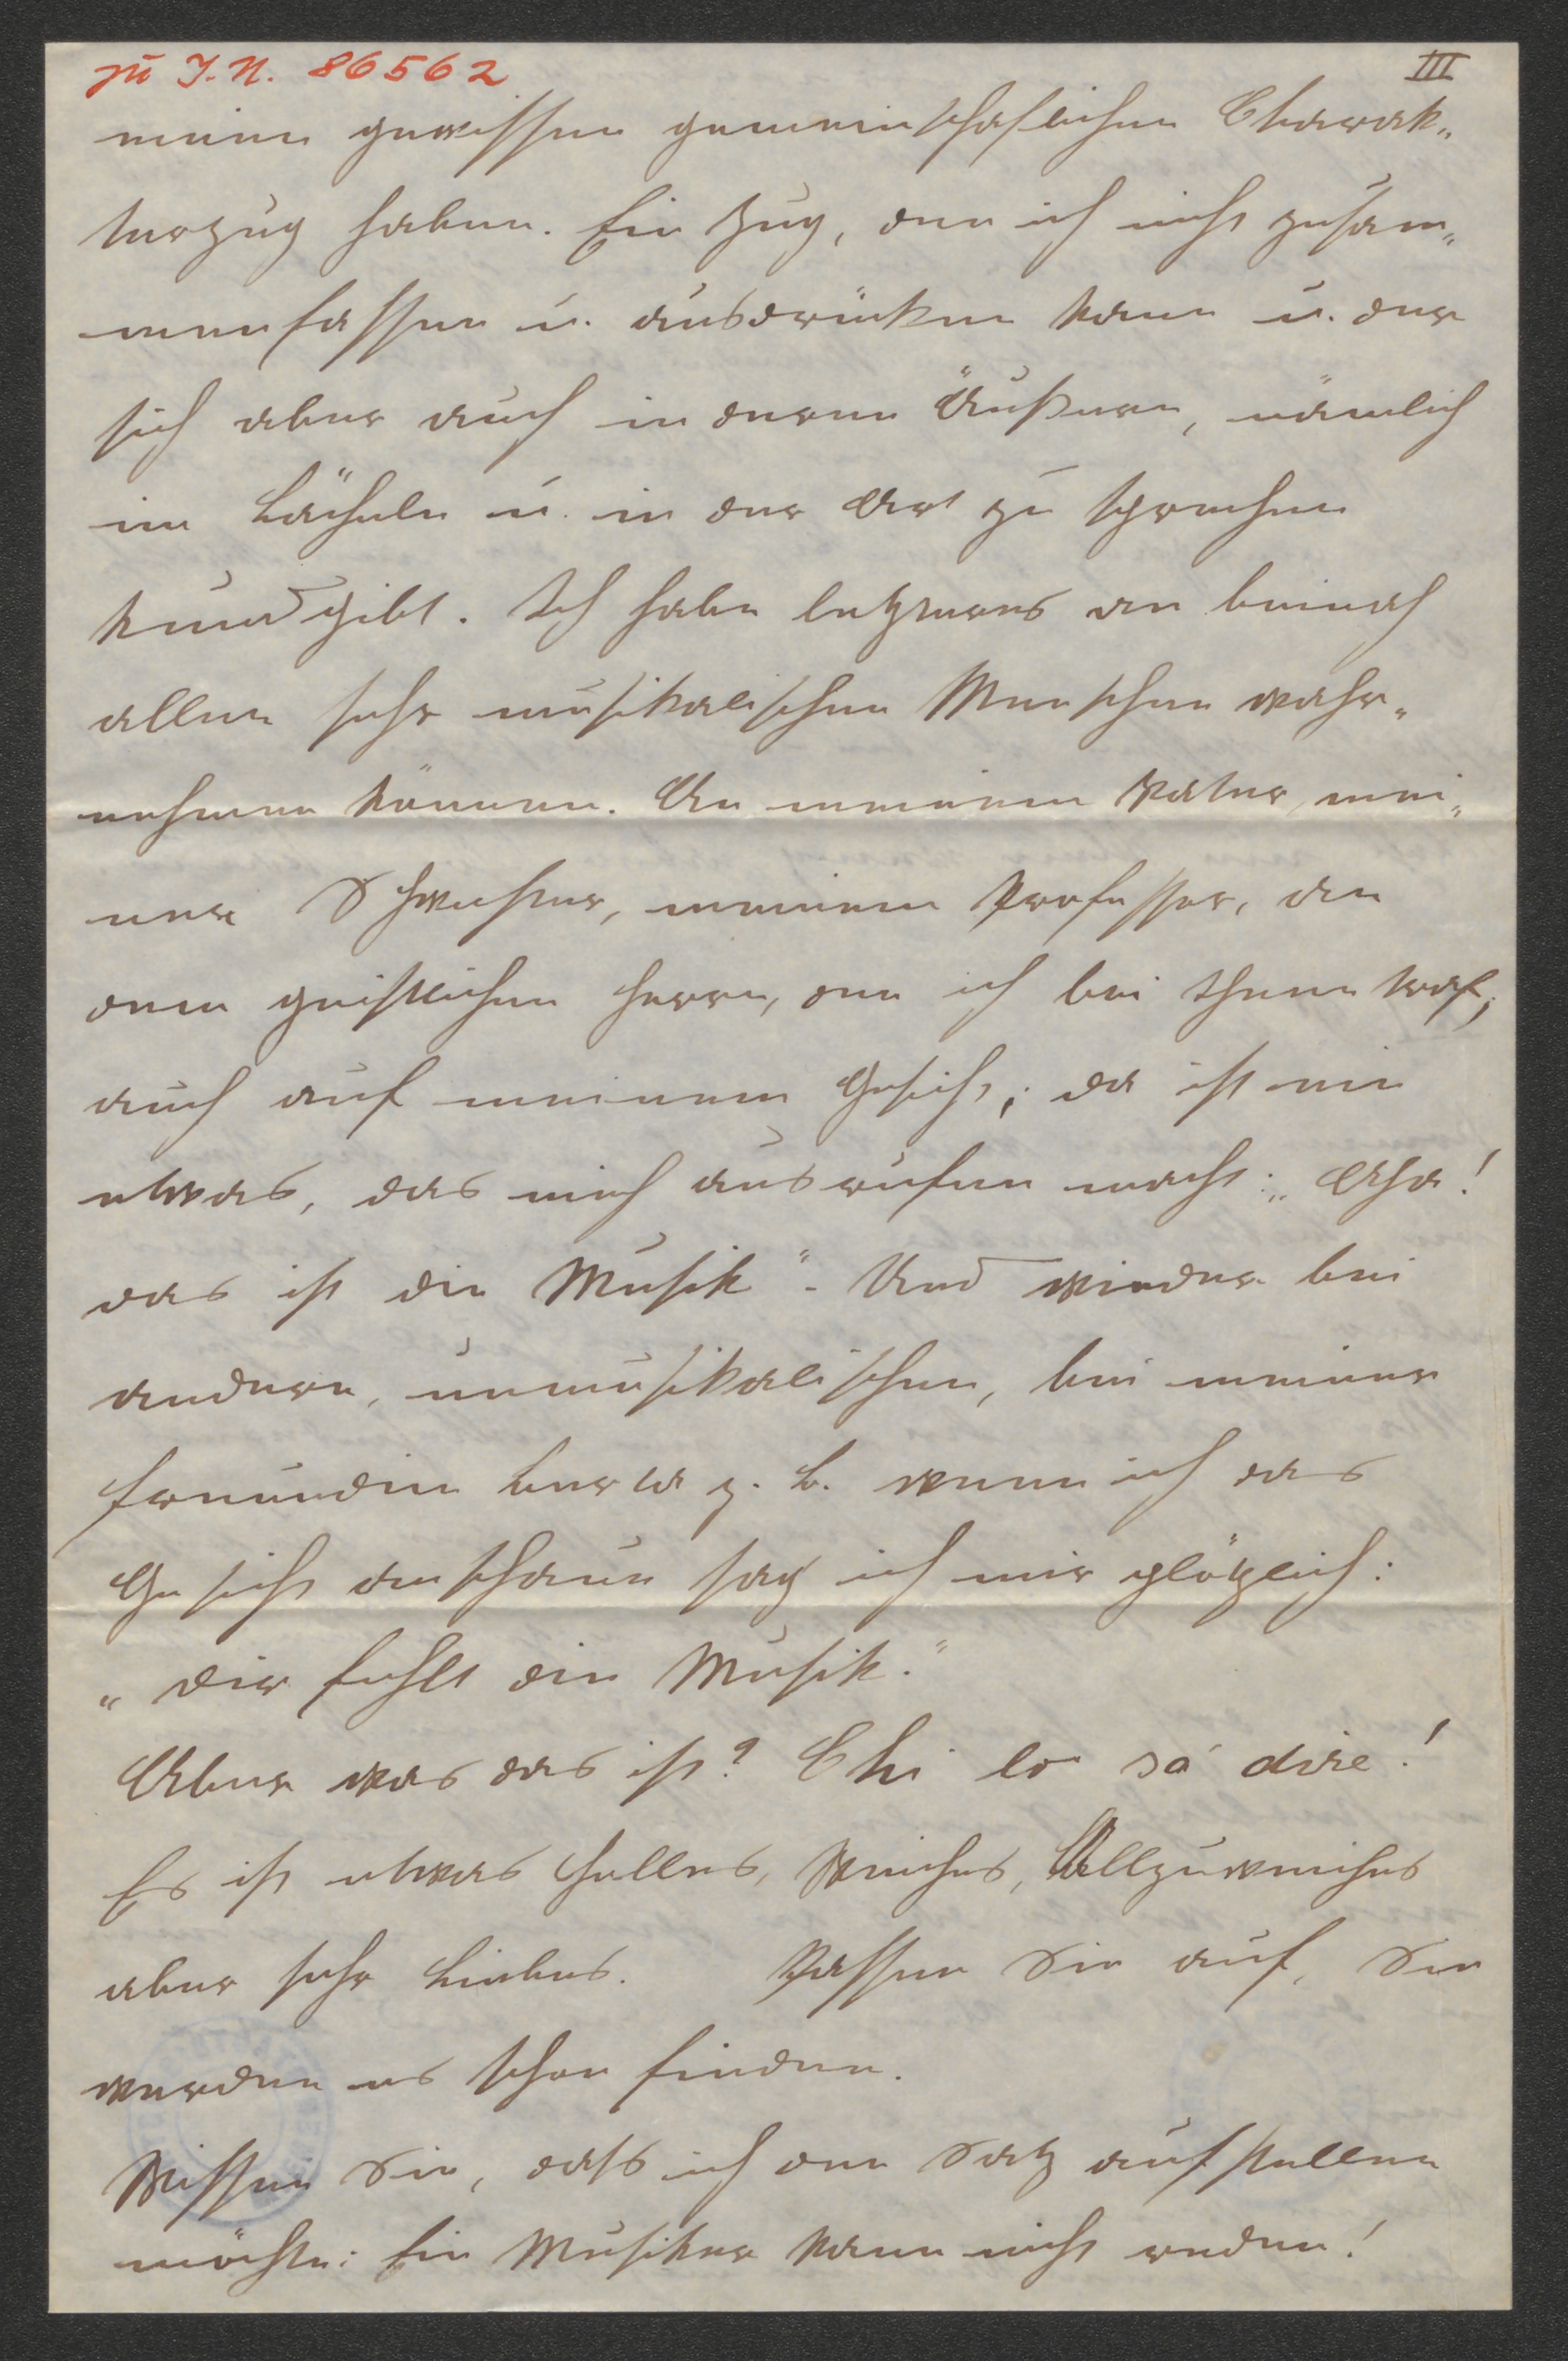 zu I.N. 86562
III
einen gewissen gemeinschaflichen Charak„
terzug haben. Ein Zug, den ich nicht zusam„
menfassen u. ausdrücken kann u. der
sich aber auch in deren Äußern, nämlich
im Lächeln u. in der Art zu sprechen
kund gibt. Ich habe letzteres an beinah
allen sehr musikalischen Menschen wahr„
nehmen können. An meinem Vater, mei„
ner Schwester, meinem Professor, an
dem geistlichen Herrn, den ich bei Ihnen traf,
auch auf meinem Gesicht; da ist ein
etwas, das mich ausrufen macht: „Aha!
das ist die Musik“ - Und wieder bei
andern, unmusikalischen, bei meiner
Freundin Berta z. B. wenn ich das
Gesicht anschaue sag ich mir plötzlich:
„Dir fehlt die Musik.“
Aber was das ist? Chi lo sá dire!
Es ist etwas Helles, Weiches, Allzuweiches
aber sehr Liebes. Passen Sie auf, Sie
werden es schon finden.
Wissen Sie, dass ich den Satz aufstellen
möchte: Ein Musiker kann nicht reden!